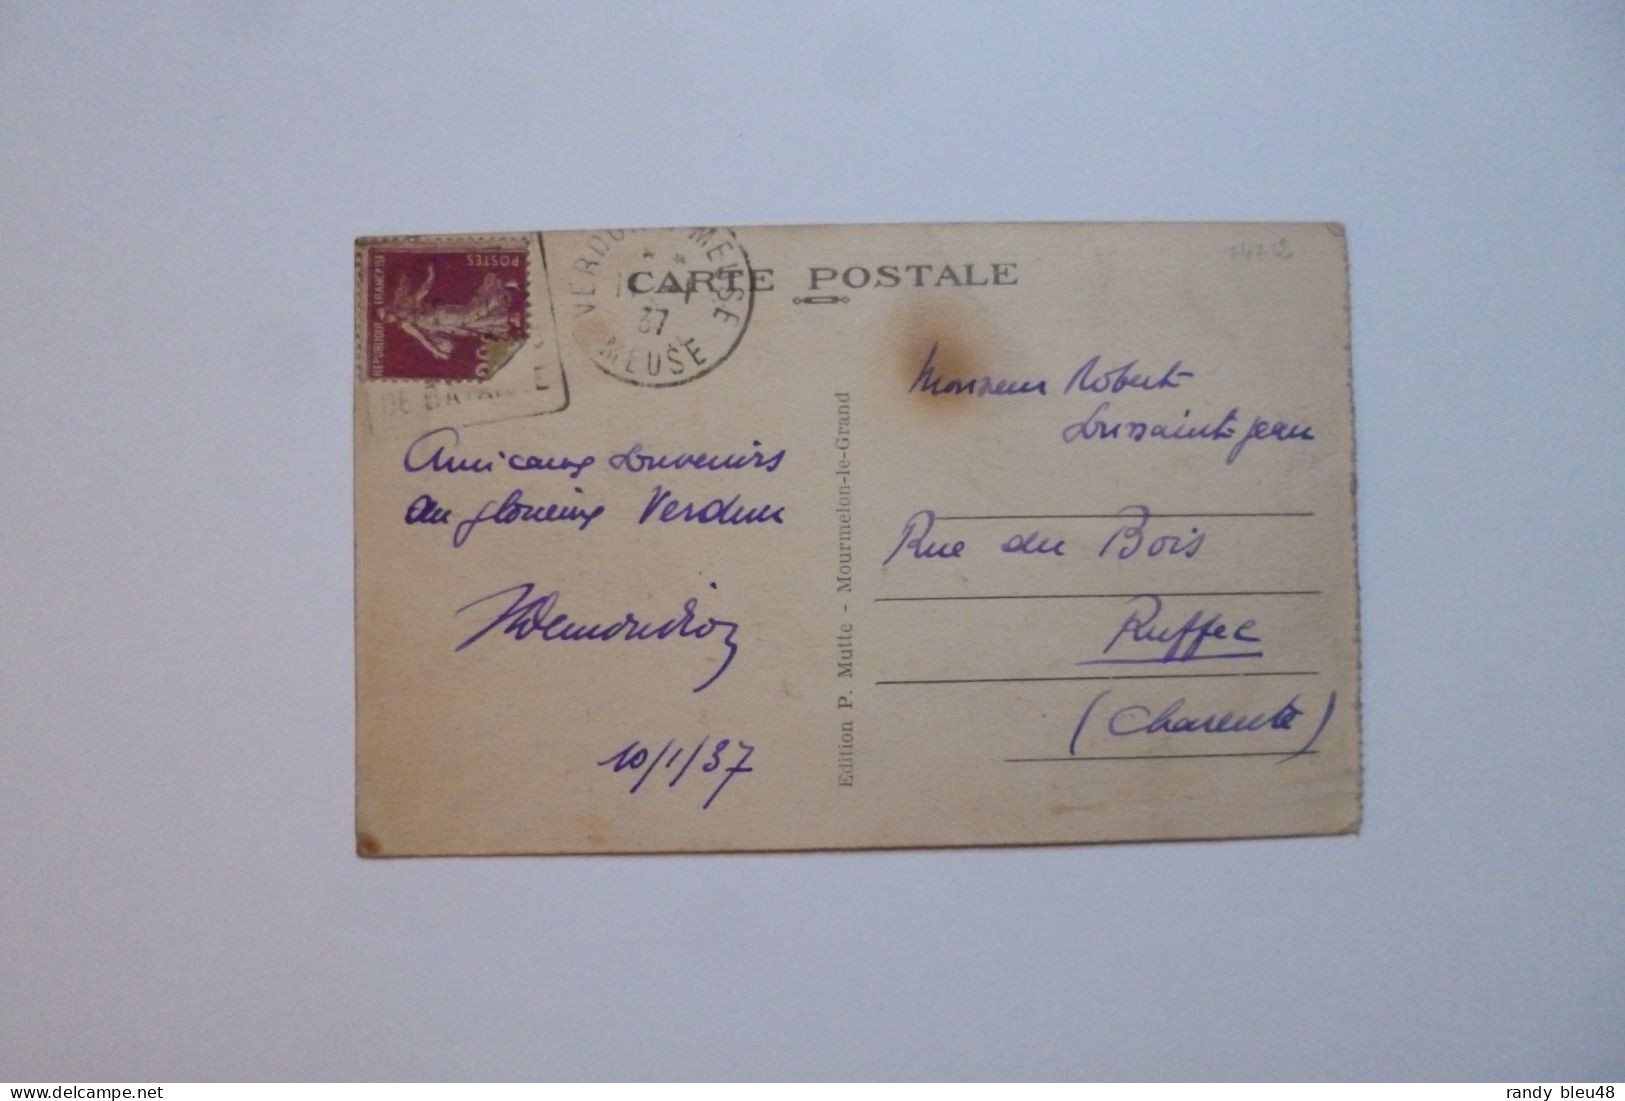 CARTE POSTALE
7472
VERDUN MEUSE
37
MEUSE
POSTES
REPUBLIQUE FRANÇAISE
DE BATAI
Amicaux Souvenirs
du glorieux Verdun
10/1/37
Edition P. Mutte - Mourmelon-le-Grand
Monsieur Robert
Toussaint-Jean
Rue du Bois
Ruffec
(Charente)
delcampe.net
randy_bleu48